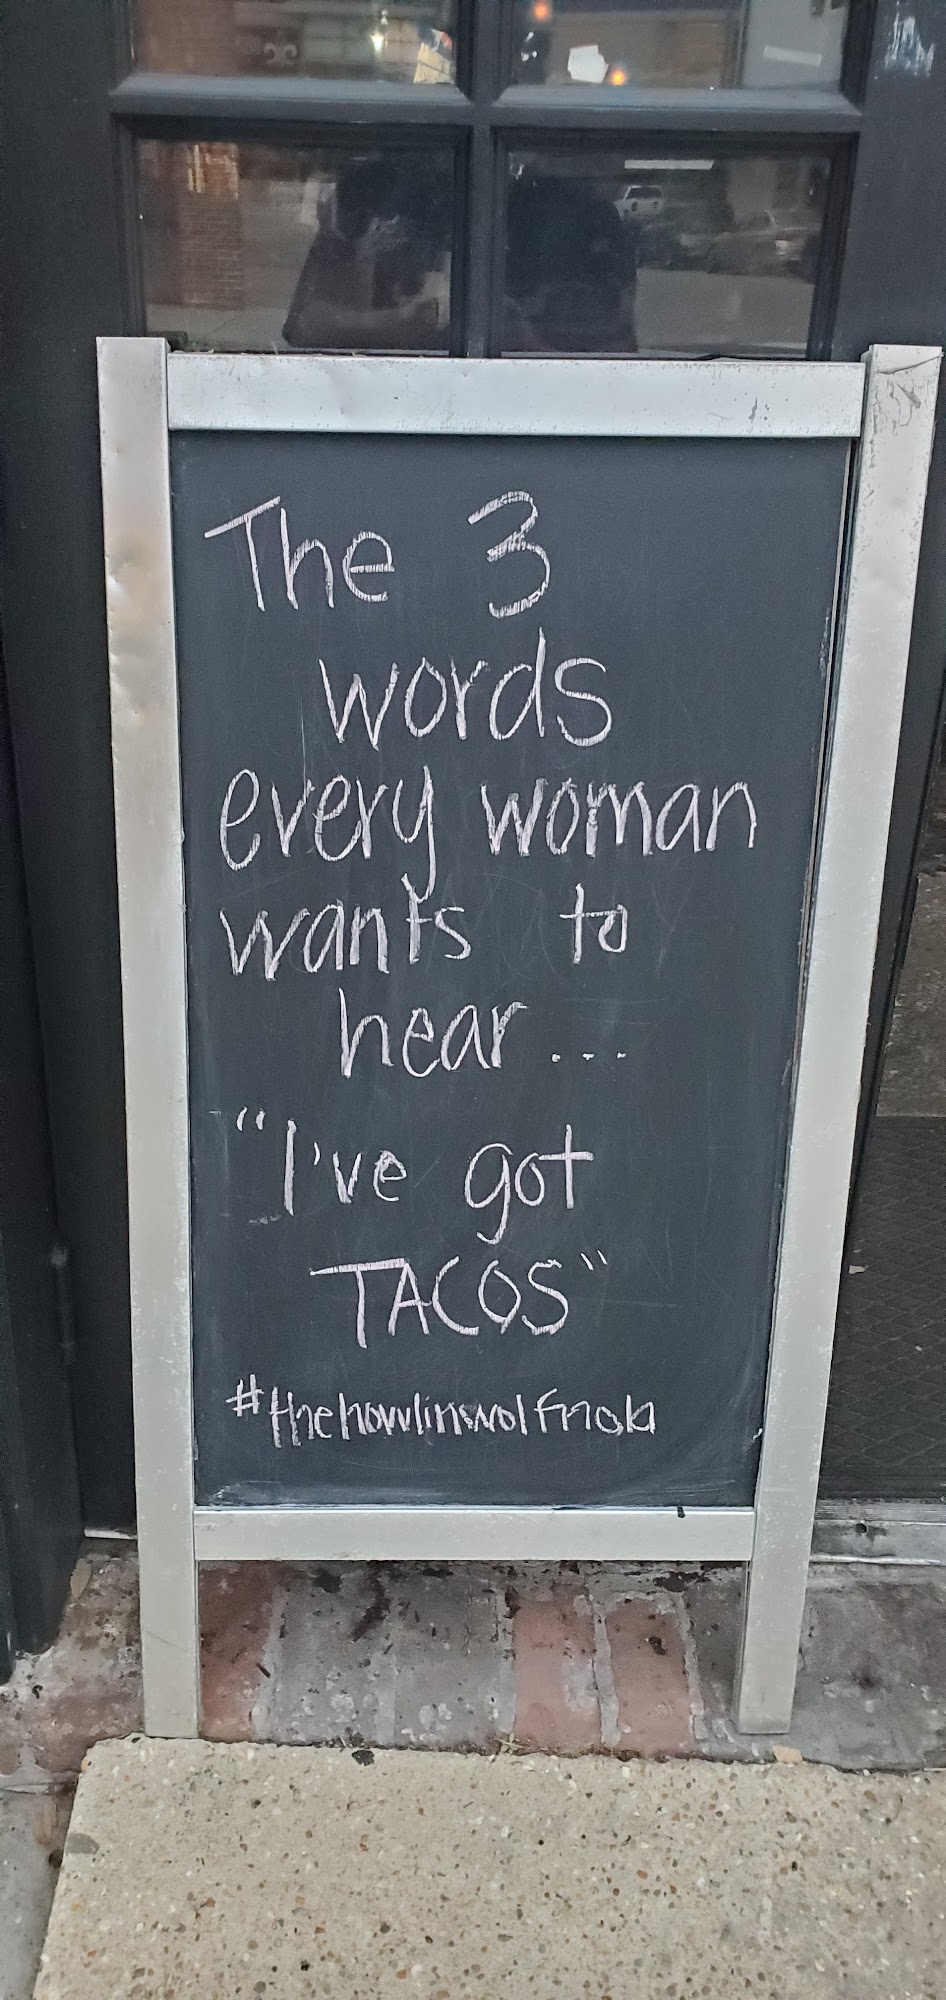 The 3
words
every woman
wants to
hear...
"I've got
TACOS"
#thehowlinwolfnola